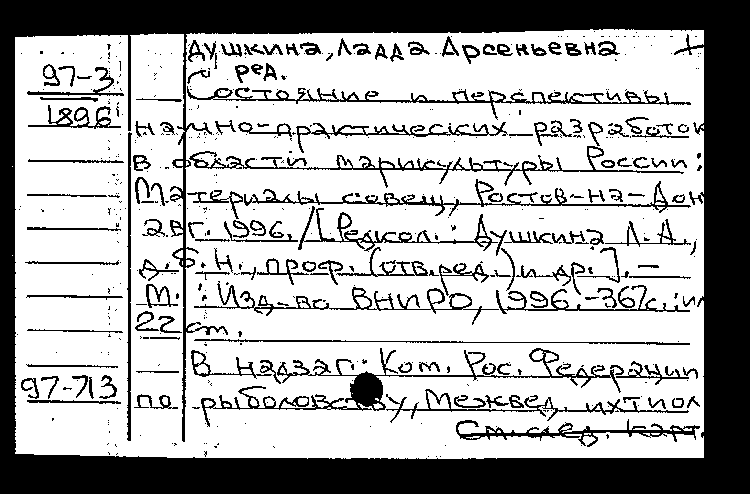 Душкина, Ладда Арсеньевна +
ред.
97-3
1896
Состояние и перспективы
научно-практических разработок
в области марикультуры России:
Материалы совещ, Ростов-на-Дон
авг. 1996. / [Редкол.: Душкина Л. А.,
д. б. н., проф. (отв. ред.) и др.]. —
М.: Изд-во ВНИРО, 1996. - 367с.: ил
22 ст.
В надзаг: Ком. Рос. Федерации
97-713
по рыболовству, Межвед. ихтиол
См. след. карт.